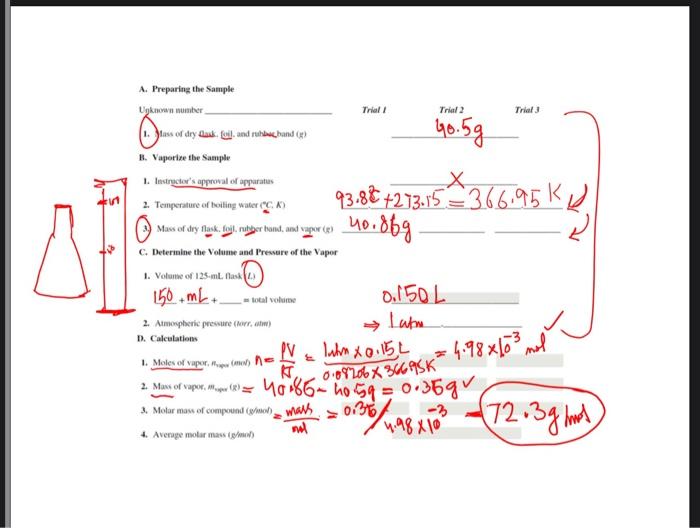 A. Preparing the Sample
Unknown number Trial 1 Trial 2 Trial 3
1. Mass of dry flask, foil, and rubber band (g) 40.5g
B. Vaporize the Sample
1. Instructor's approval of apparatus X
2. Temperature of boiling water (°C, K) 93.8°C +273.15 = 366.95 K
3. Mass of dry flask, foil, rubber band, and vapor (g) 40.86g
C. Determine the Volume and Pressure of the Vapor
1. Volume of 125-mL flask (L)
150 + mL + = total volume 0.150L
2. Atmospheric pressure (torr, atm) ⇒ 1 atm
D. Calculations
1. Moles of vapor, n vapor (mol) n = PV/RT = 1atm x 0.15L / 0.08206 x 366.95K = 4.98 x 10⁻³ mol
2. Mass of vapor, m vapor (g) = 40.86 - 40.5g = 0.36g ✓
3. Molar mass of compound (g/mol) = mass/mol = 0.36/4.98 x 10⁻³ = 72.3g/mol
4. Average molar mass (g/mol)